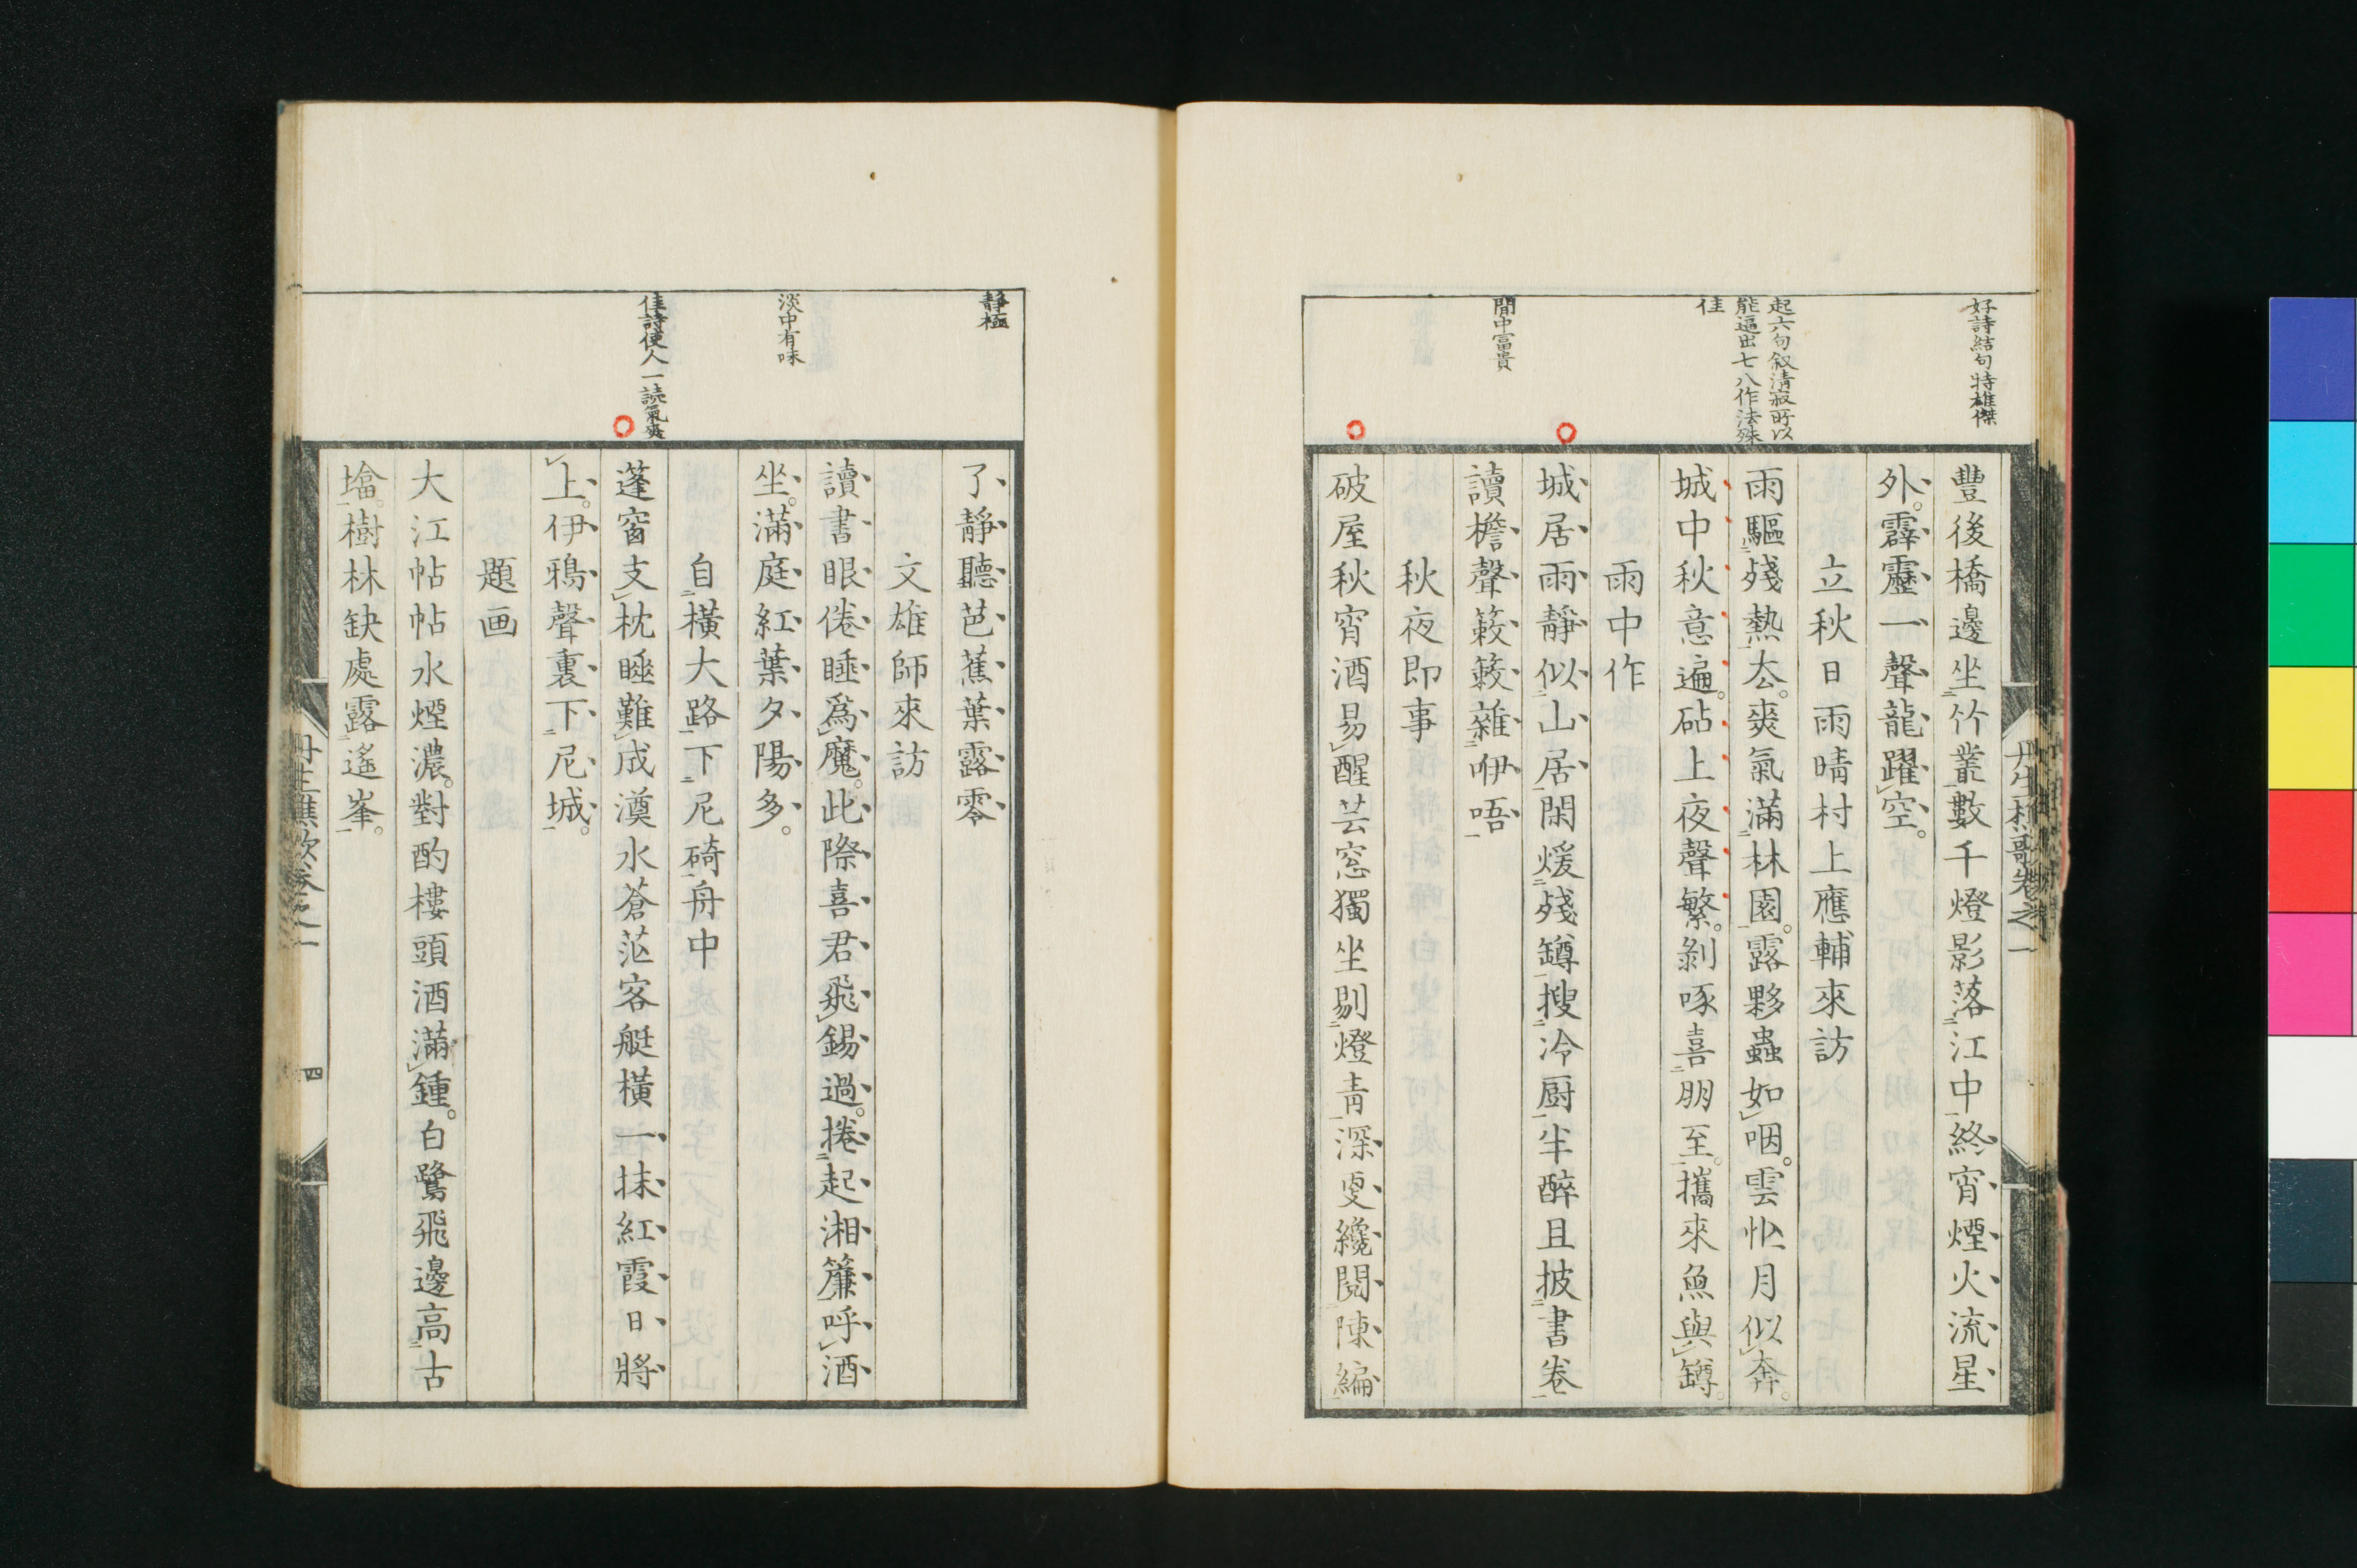 好詩結句特雄傑
起六句叙清寂所以
能逼出七八作法殊
佳
閒中富貴
豐後橋邊坐竹叢數千燈影落江中終宵煙火流星
外。霹靂一聲龍躍空。
立秋日雨晴村上應輔來訪
雨驅殘熱去。爽氣滿林園。露夥蟲如咽。雲忙月似奔。
城中秋意遍。砧上夜聲繁。剝啄喜朋至。攜來魚與罇。
雨中作
城居雨靜似山居閑煖殘罇搜冷厨半醉且披書卷
讀檐聲簌簌雜咿唔
秋夜即事
破屋秋宵酒易醒芸窓獨坐剔燈青深更纔閱陳編
靜極
淡中有味
佳詩使人一読氣爽
了靜聽芭蕉葉露零
文雄師來訪
讀書眼倦睡爲魔。此際喜君飛錫過。捲起湘簾呼酒
坐。滿庭紅葉夕陽多。
自橫大路下尼碕舟中
蓬窗支枕睡難成漠水蒼茫客艇橫一抹紅霞日將
上。伊鴉聲裏下尼城。
題画
大江帖帖水煙濃。對酌樓頭酒滿鍾。白鷺飛邊高古
墖。樹林缺處露遙峯。
丹生樵歌卷之一
四